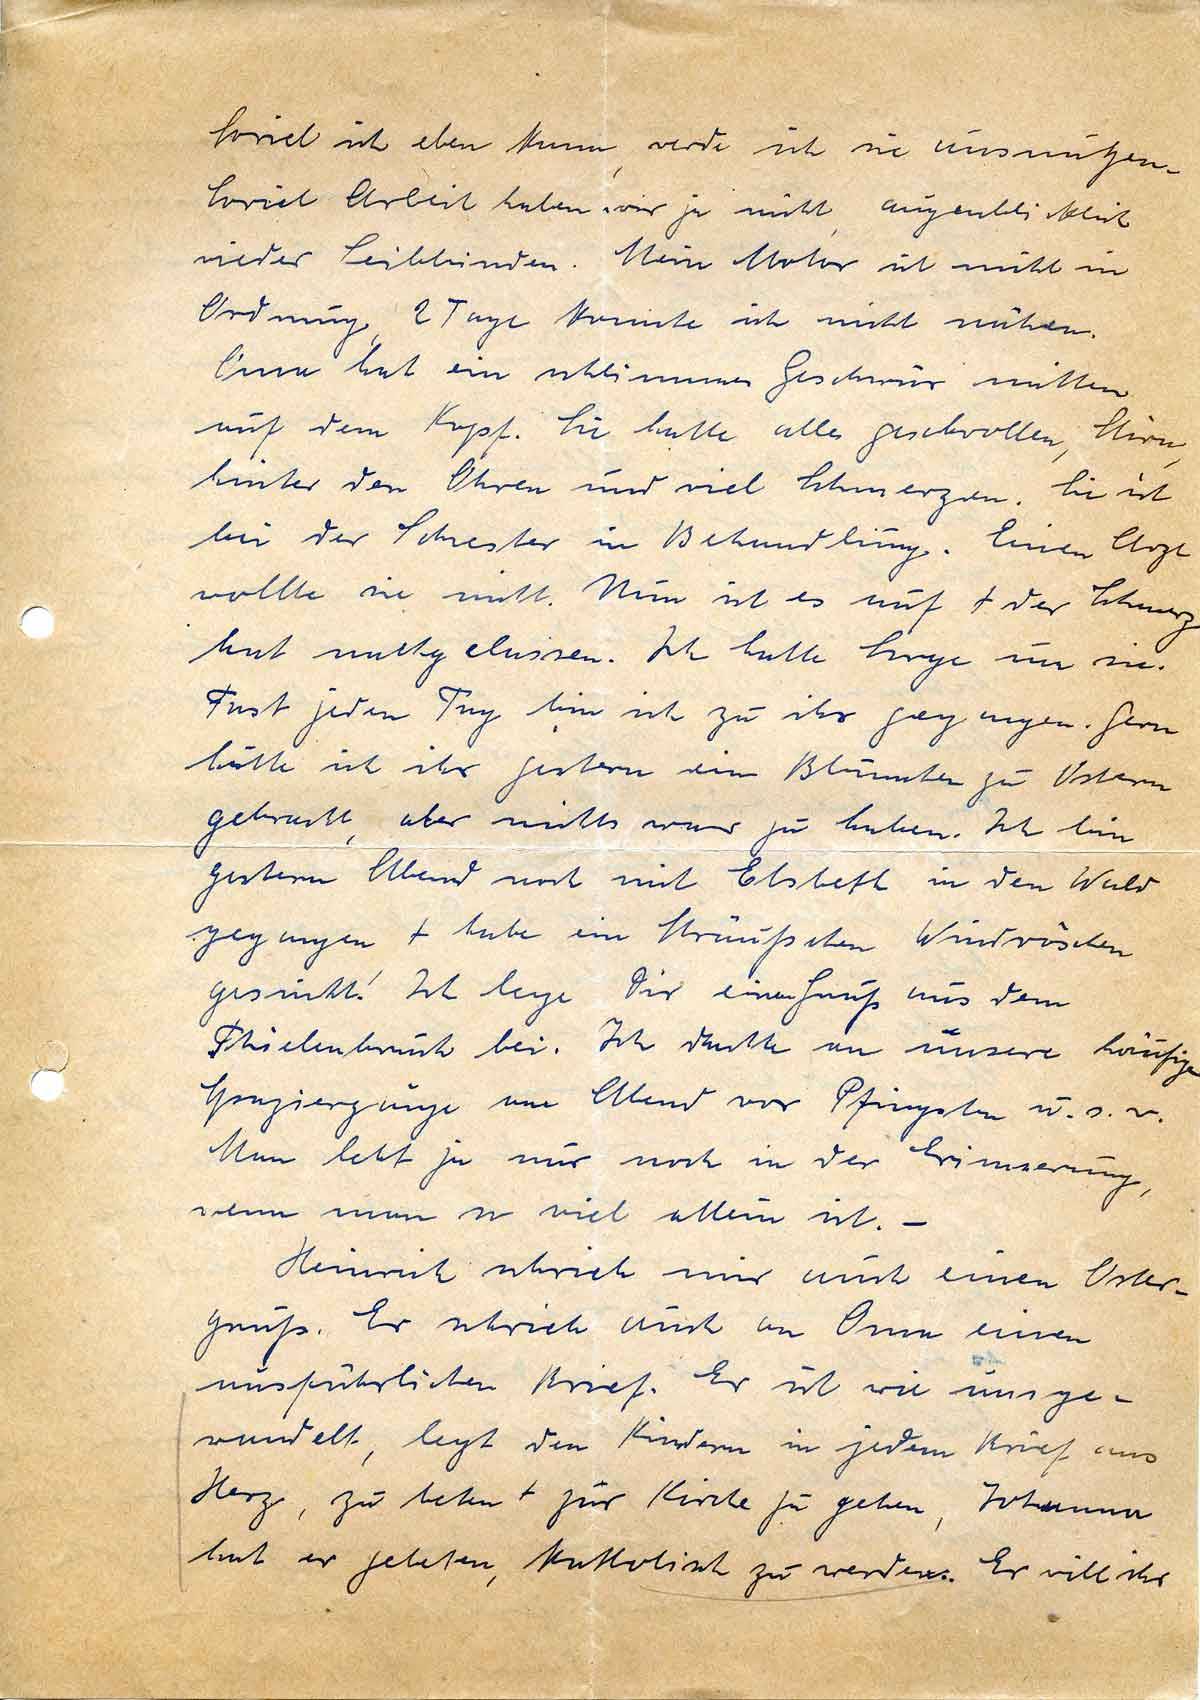 Soviel ich eben kann, werde ich sie ausnützen.
Soviel Arbeit haben wir ja nicht, augenblicklich
wieder Leibbinden. Mein Motor ist nicht in
Ordnung, 2 Tage konnte ich nicht nähen.
Oma hat ein schlimmes Geschwür mitten
auf dem Kopf. Sie hatte alles geschwollen, Stirn,
hinter den Ohren und viel Schmerzen. Sie ist
bei der Schwester in Behandlung. Einen Arzt
wollte sie nicht. Nun ist es auf + der Schmerz
hat nachgelassen. Ich hatte Sorge um sie.
Fast jeden Tag bin ich zu ihr gegangen. Gern
hätte ich ihr gestern ein Blümchen zu Ostern
gebracht, aber nichts war zu haben. Ich bin
gestern Abend noch mit Elsbeth in den Wald
gegangen + habe ein Sträußchen Windröschen
gesucht! Ich lege Dir einen Gruß aus dem
Thielenbruch bei. Ich dachte an unsere häufigen
Spaziergänge am Abend vor Pfingsten u.s.w.
Man lebt ja nur noch in der Erinnerung,
wenn man so viel allein ist. –
Heinrich schrieb mir auch einen Oster-
gruß. Er schrieb auch an Oma einen
ausführlichen Brief. Er ist wie umge-
wandelt, legt den Kindern in jedem Brief ans
Herz, zu beten + zur Kirche zu gehen, Johanna
hat er gebeten, katholisch zu werden. Er will ihr